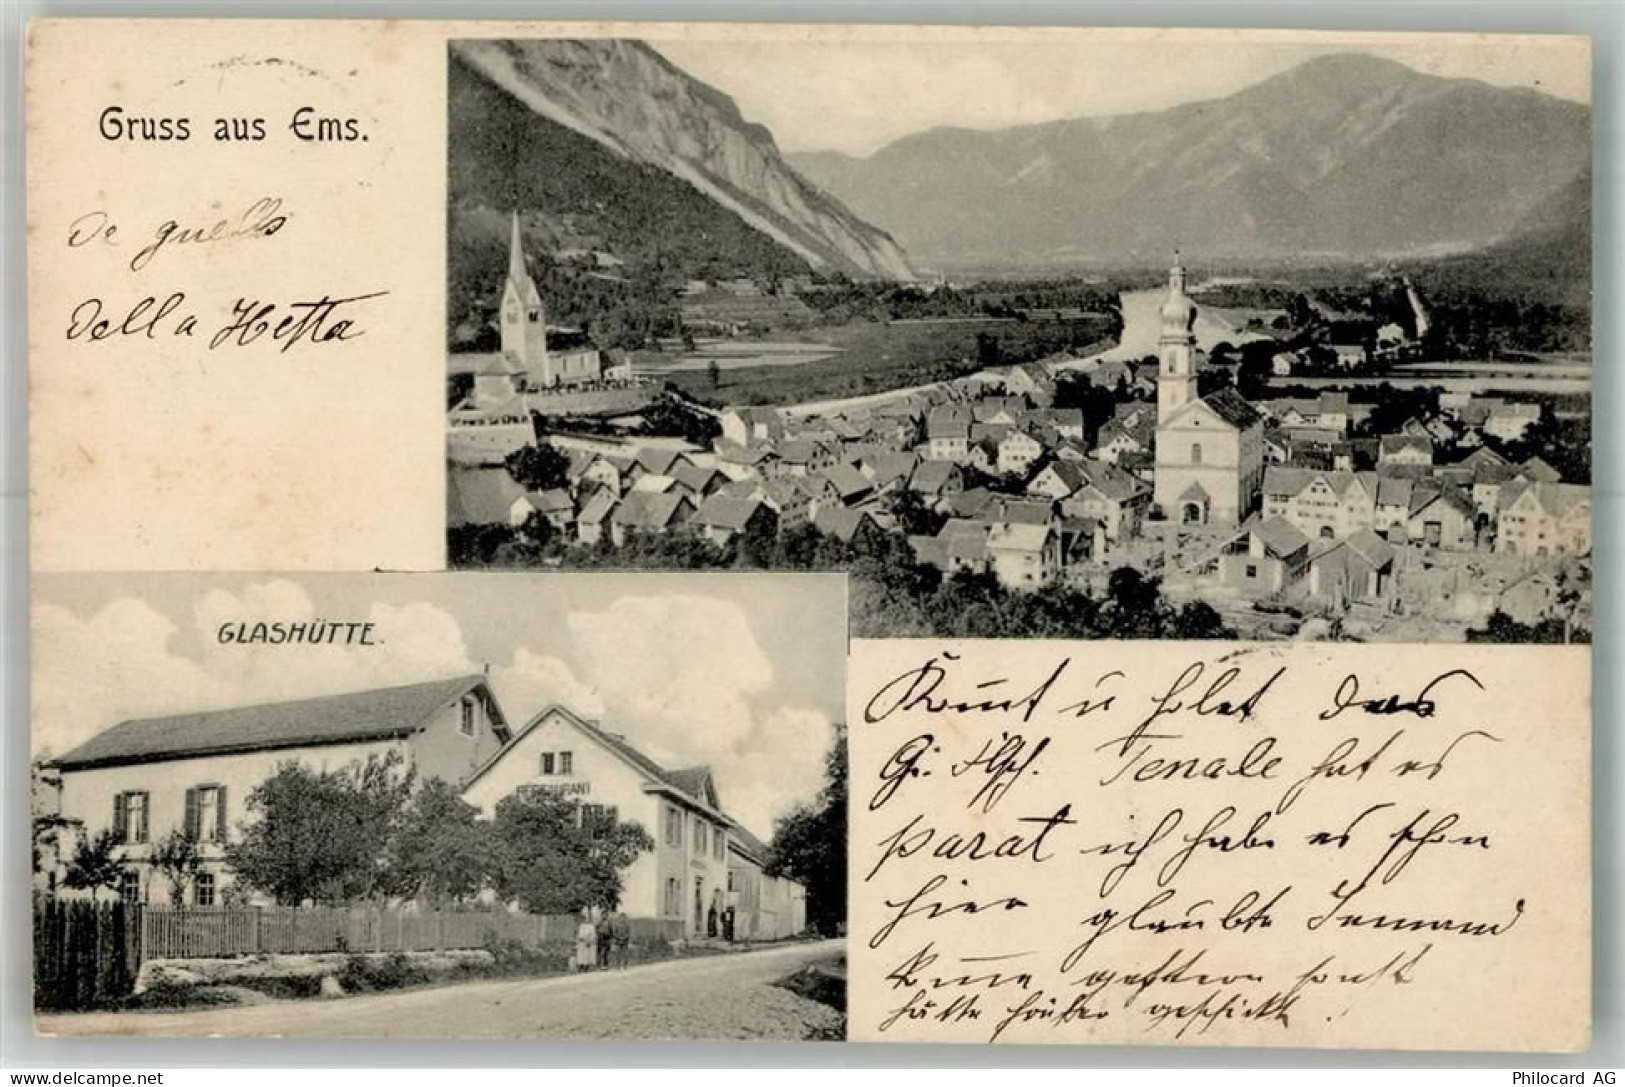 Gruss aus Ems.
de quells
della Hetta
GLASHÜTTE.
RESTAURANT
Kommt u holet das
Gi. Flsch. Tenale hat es
parat ich habe es schon
hier glaubte Jemand
komme gestern sonst
hätte früher geschickt.
delcampe.net
Philocard AG